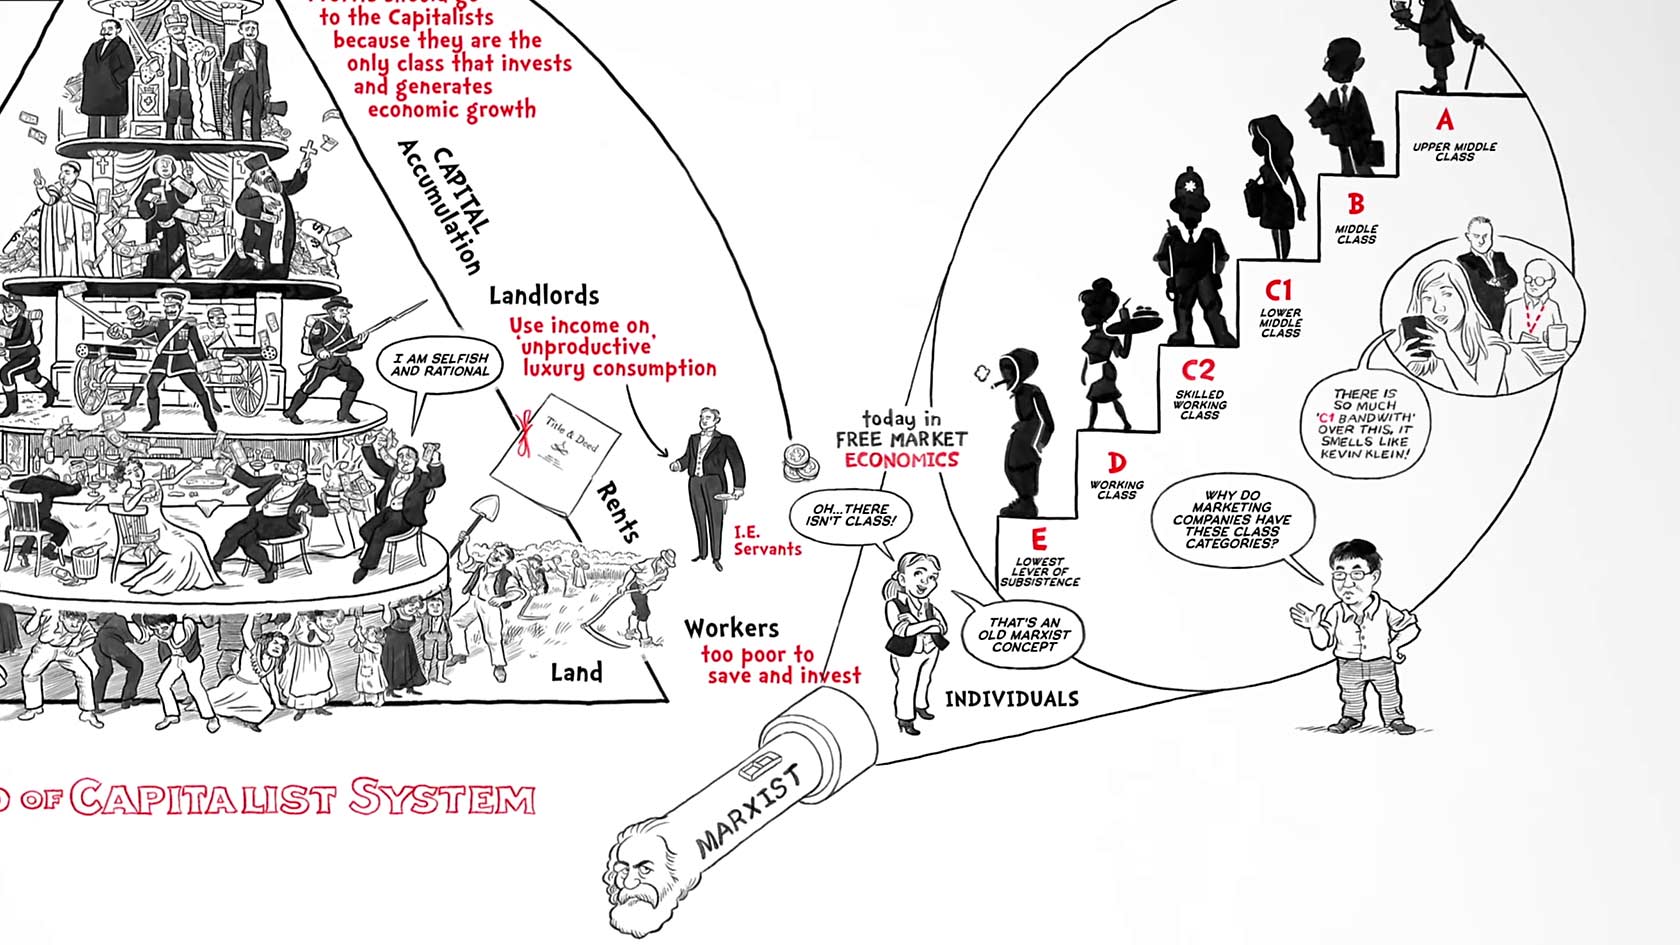 to the Capitalists
because they are the
only class that invests
and generates
economic growth
CAPITAL
Accumulation
Landlords
Use income on
'unproductive'
luxury consumption
I AM SELFISH
AND RATIONAL
Title & Deed
Rents
I.E.
Servants
Land
Workers
too poor to
save and invest
OF CAPITALIST SYSTEM
MARXIST
today in
FREE MARKET
ECONOMICS
OH...THERE
ISN'T CLASS!
THAT'S AN
OLD MARXIST
CONCEPT
INDIVIDUALS
A
UPPER MIDDLE
CLASS
B
MIDDLE
CLASS
C1
LOWER
MIDDLE
CLASS
C2
SKILLED
WORKING
CLASS
D
WORKING
CLASS
E
LOWEST
LEVER OF
SUBSISTENCE
THERE IS
SO MUCH
'C1 BANDWITH'
OVER THIS, IT
SMELLS LIKE
KEVIN KLEIN!
WHY DO
MARKETING
COMPANIES HAVE
THESE CLASS
CATEGORIES?